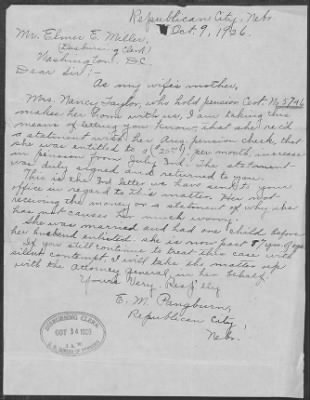 Republican City, Nebr
Oct. 9, 1926.
Mr. Elmer E. Miller,
(Disbursing Clerk)
Washington, D.C.
Dear Sir:-
As my wife's mother,
Mrs. Nancy Taylor, who hold pension Cert. No 5746
makes her home with us, I am taking this
means of letting you know, that she rec'd
a statement with her Aug pension check, that
she was entitled to a (20.00) per month, increase
in pension from July 3rd. The statement
was duly signed and returned to you.
This is the 3rd letter we have sent to your
office in regard to this matter. Her not
receiving the money or a statement of why, she
has not causes her much worry.
She was married and had one child before
her husband enlisted. She is now past 87 yrs. of age.
If you still continue to treat this case with
silent contempt, I will take the matter up
with the Attorney general, in her behalf
Yours Very Resp'ely
E. M. Pangburn,
Republican City,
Nebr.
DISBURSING CLERK
OCT 14 1926